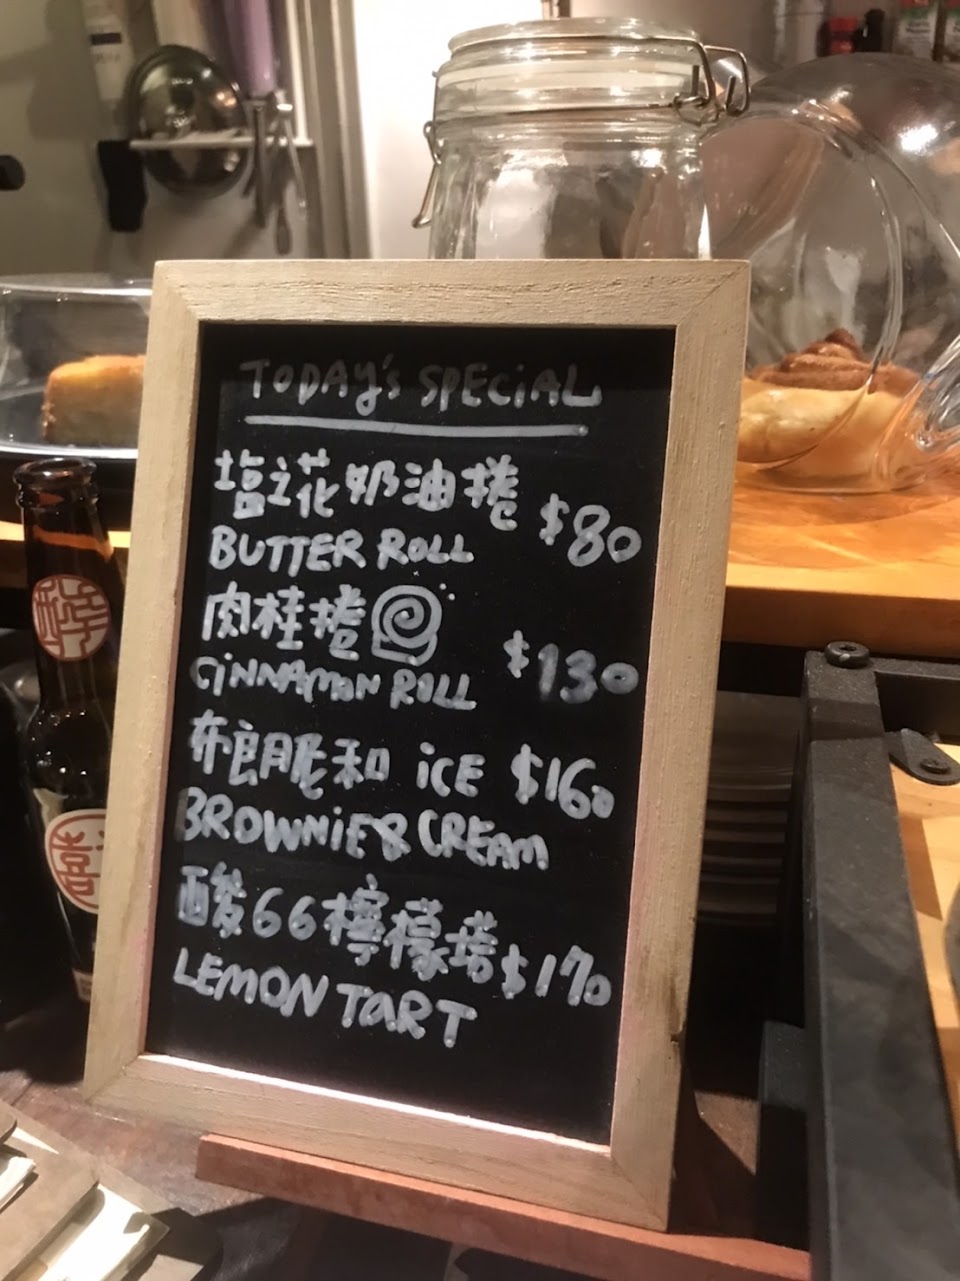 TODAY's SPECiAL
塩之花奶油捲 $80
BUTTER ROLL
肉桂捲 $130
CiNNAMON ROLL
布朗脆和 iCE $160
BROWNiE&CREAM
酸66檸檬塔 $170
LEMON TART